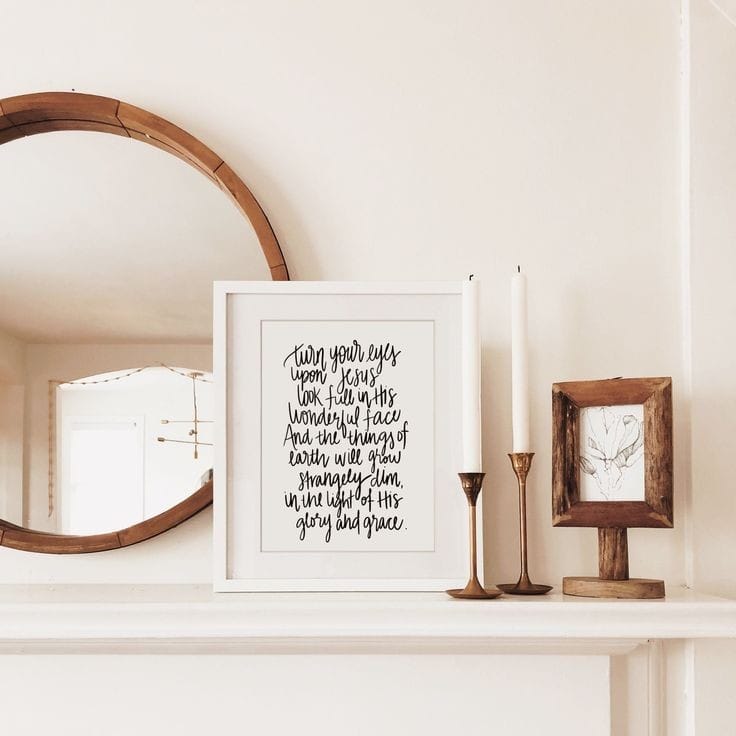 turn your eyes
upon Jesus
look full in His
wonderful face
And the things of
earth will grow
strangely dim,
in the light of His
glory and grace.